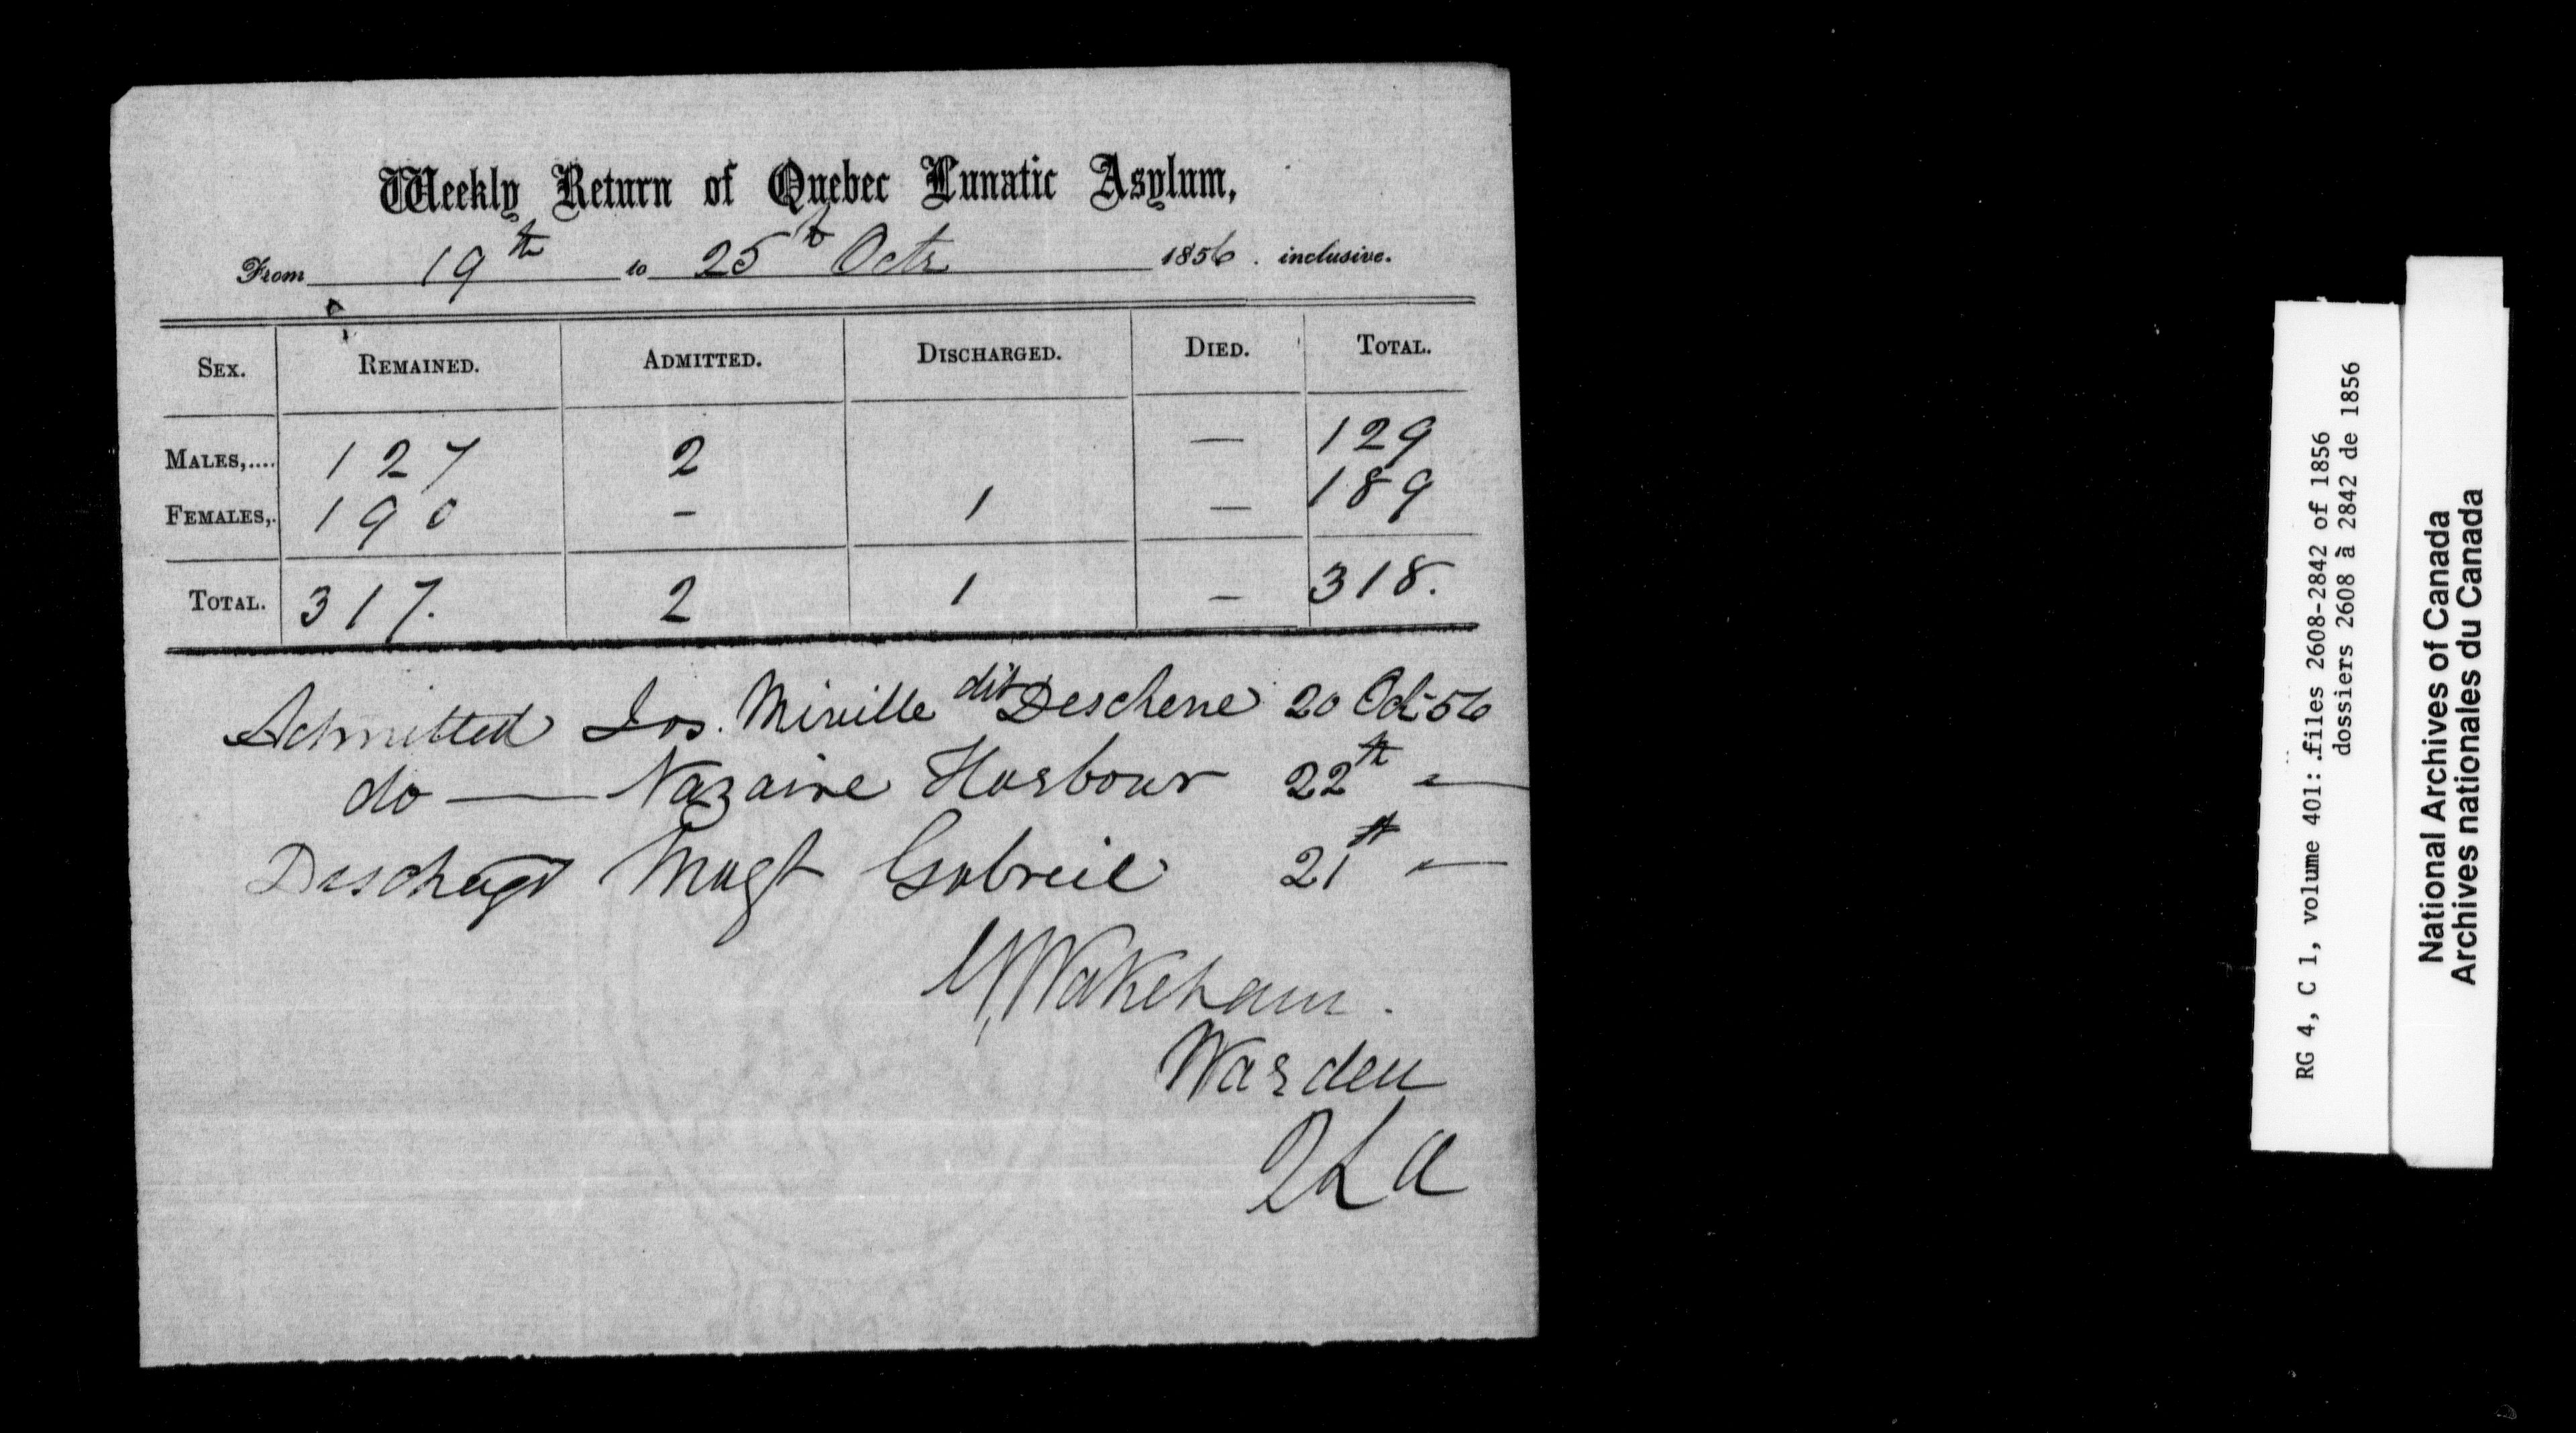 Weekly Return of Quebec Lunatic Asylum,
From 19th to 25th Octr 1856. inclusive.
SEX. REMAINED. ADMITTED. DISCHARGED. DIED. TOTAL.
MALES,.... 127 2 — 129
FEMALES,. 190 - 1 — 189
TOTAL. 317. 2 1 — 318.
Admitted Jos. Miville dit Deschene 20 Oct 56
do — Nazaire Harbour 22th "—
Dischagd Magt Gabriel 21th "—
Wakeham.
Warden
QLA
RG 4, C 1, volume 401: files 2608-2842 of 1856
dossiers 2608 à 2842 de 1856
National Archives of Canada
Archives nationales du Canada